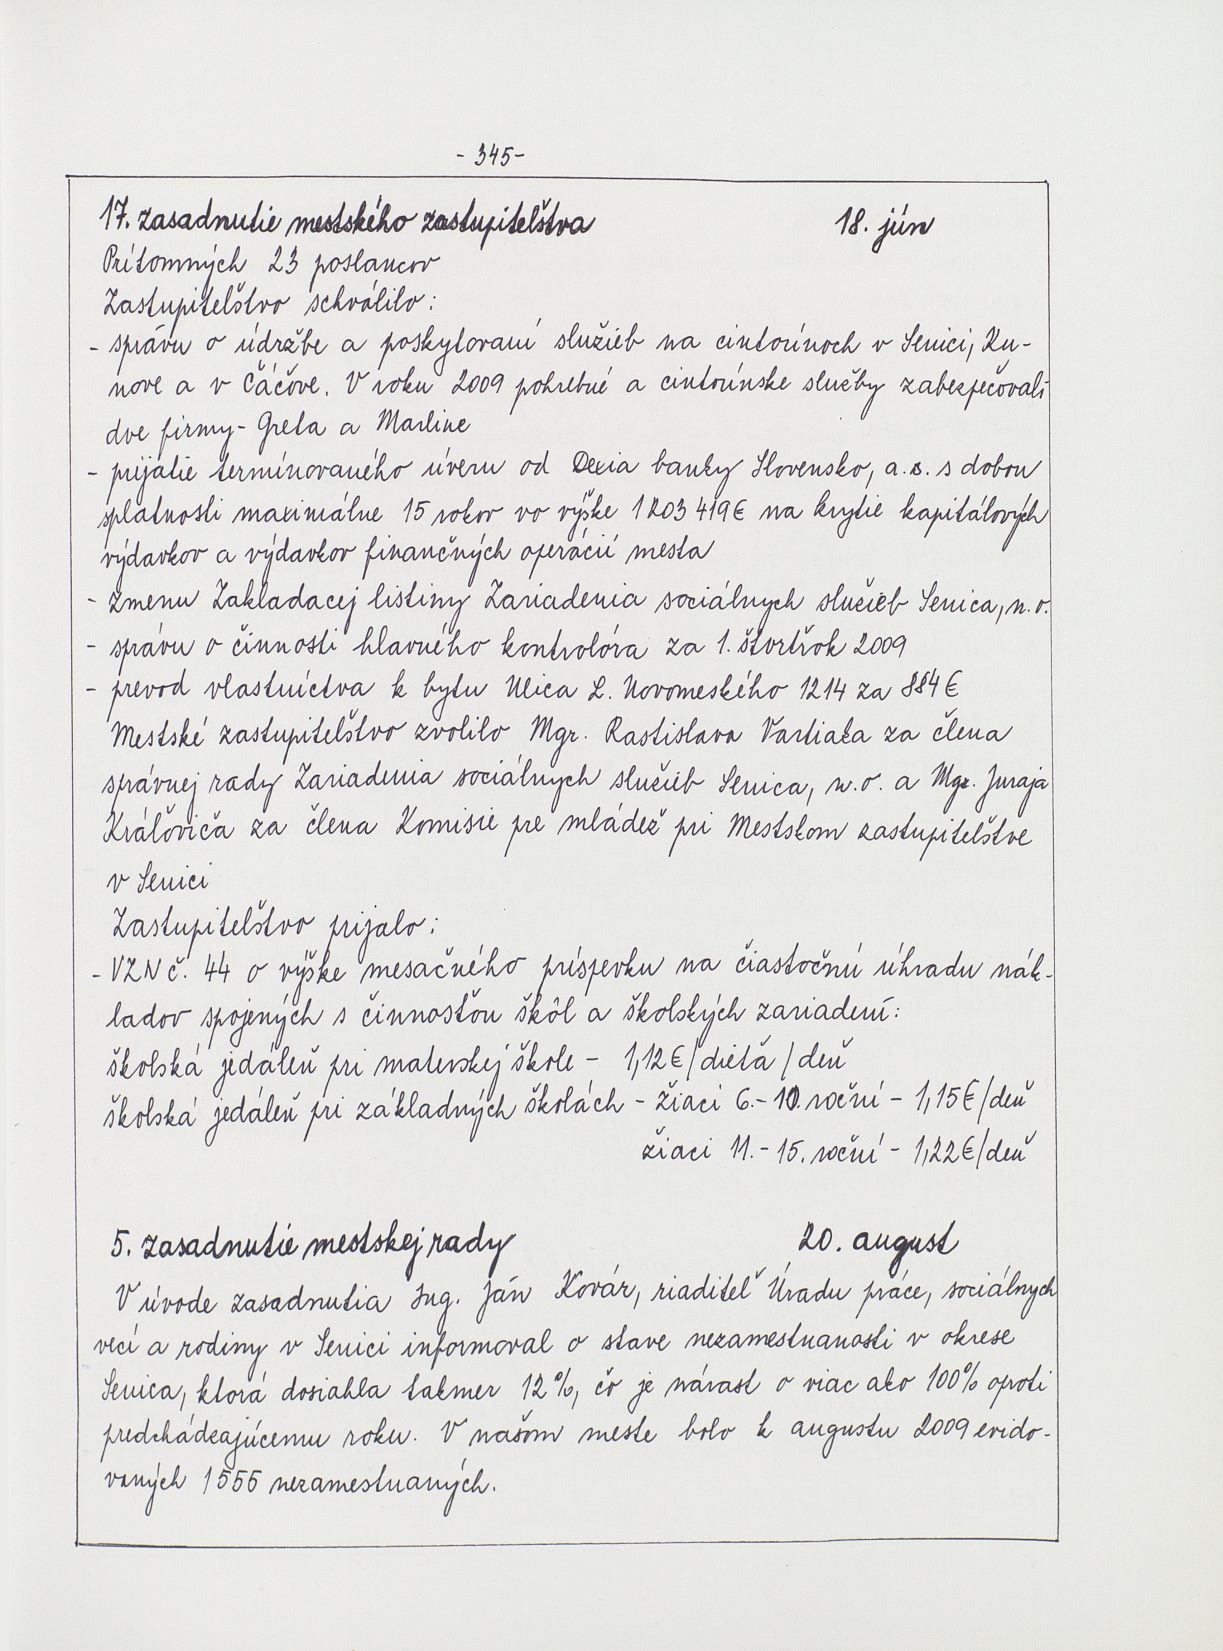 - 345-
17. zasadnutie mestského zastupiteľstva 18. jún
Prítomných 23 poslancov
Zastupiteľstvo schválilo:
- správu o údržbe a poskytovaní služieb na cintorínoch v Senici, Ku-
nove a v Čáčove. V roku 2009 pohrebné a cintorínske služby zabezpečovali
dve firmy - Greta a Marline
- prijatie termínovaného úveru od Dexia banky Slovensko, a.s. s dobou
splatnosti maximálne 15 rokov vo výške 1 203 419 € na krytie kapitálových
výdavkov a výdavkov finančných operácií mesta
- zmenu Zakladacej listiny Zariadenia sociálnych služieb Senica, n.o.
- správu o činnosti hlavného kontrolóra za 1. štvrťrok 2009
- prevod vlastníctva k bytu Ulica L. Novomeského 1214 za 884 €
Mestské zastupiteľstvo zvolilo Mgr. Rastislava Vartiaka za člena
správnej rady Zariadenia sociálnych služieb Senica, n.o. a Mgr. Juraja
Kráľoviča za člena Komisie pre mládež pri Mestskom zastupiteľstve
v Senici
Zastupiteľstvo prijalo:
- VZN č. 44 o výške mesačného príspevku na čiastočnú úhradu nák-
ladov spojených s činnosťou škôl a školských zariadení:
školská jedáleň pri materskej škole - 1,12 €/dieťa/deň
školská jedáleň pri základných školách - žiaci 6.- 10. roční - 1,15 €/deň
žiaci 11. - 15. roční - 1,22 €/deň
5. zasadnutie mestskej rady 20. august
V úvode zasadnutia Ing. Ján Kovár, riaditeľ Úradu práce, sociálnych
vecí a rodiny v Senici informoval o stave nezamestnanosti v okrese
Senica, ktorá dosiahla takmer 12 %, čo je nárast o viac ako 100% oproti
predchádzajúcemu roku. V našom meste bolo k augustu 2009 evido-
vaných 1555 nezamestnaných.